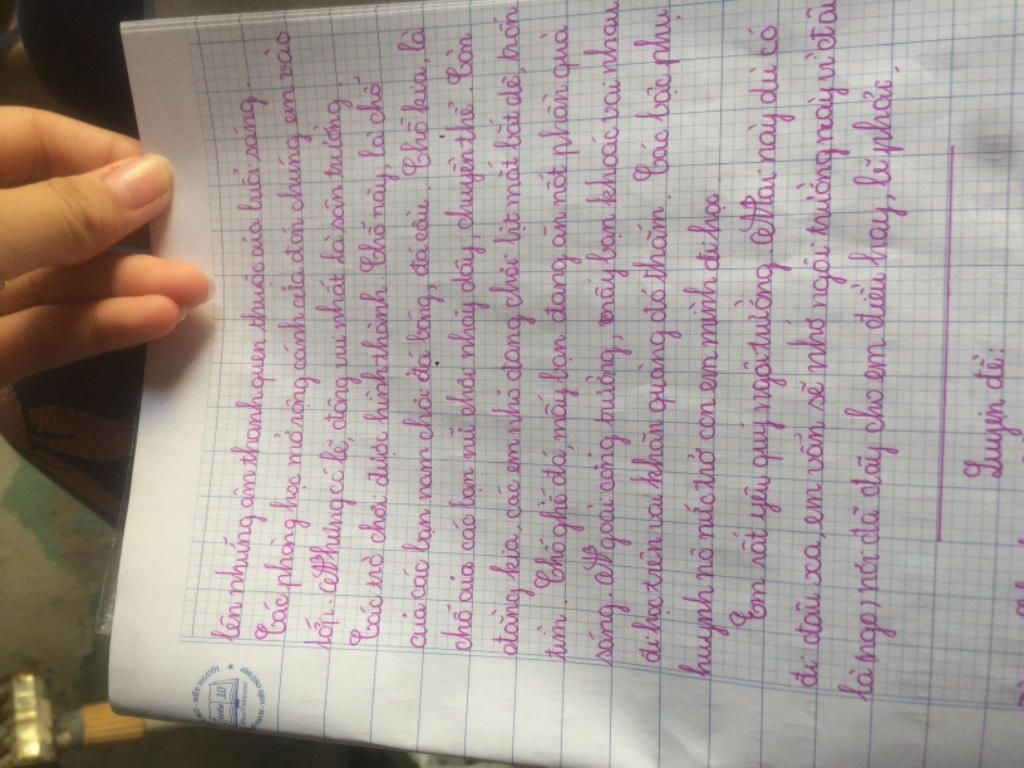 lên những âm thanh quen thuộc của buổi sáng.
Các phòng học mở rộng cánh cửa đón chúng em vào
lớp. Nhưng có lẽ, đông vui nhất là sân trường.
Các trò chơi được hình thành. Chỗ này, là chỗ
của các bạn nam chơi đá bóng, đá cầu. Chỗ kia, là
chỗ của các bạn nữ chơi nhảy dây, chuyền thẻ. Còn
đằng kia, các em nhỏ đang chơi bịt mắt bắt dê, trốn
tìm. Chỗ ghế đá, mấy bạn đang ăn nốt phần quà
sáng. Ngoài cổng trường, mấy bạn khoác vai nhau
đi học, trên vai khăn quàng đỏ thắm. Các bậc phụ
huynh nô nức trở con em mình đi học.
Em rất yêu quý ngôi trường. Mai này dù có
đi đâu xa, em vẫn sẽ nhớ ngôi trường này vì đâu
là ngọi nơi đã dấy cho em điều hay, lẽ phải.
Luyện đề: